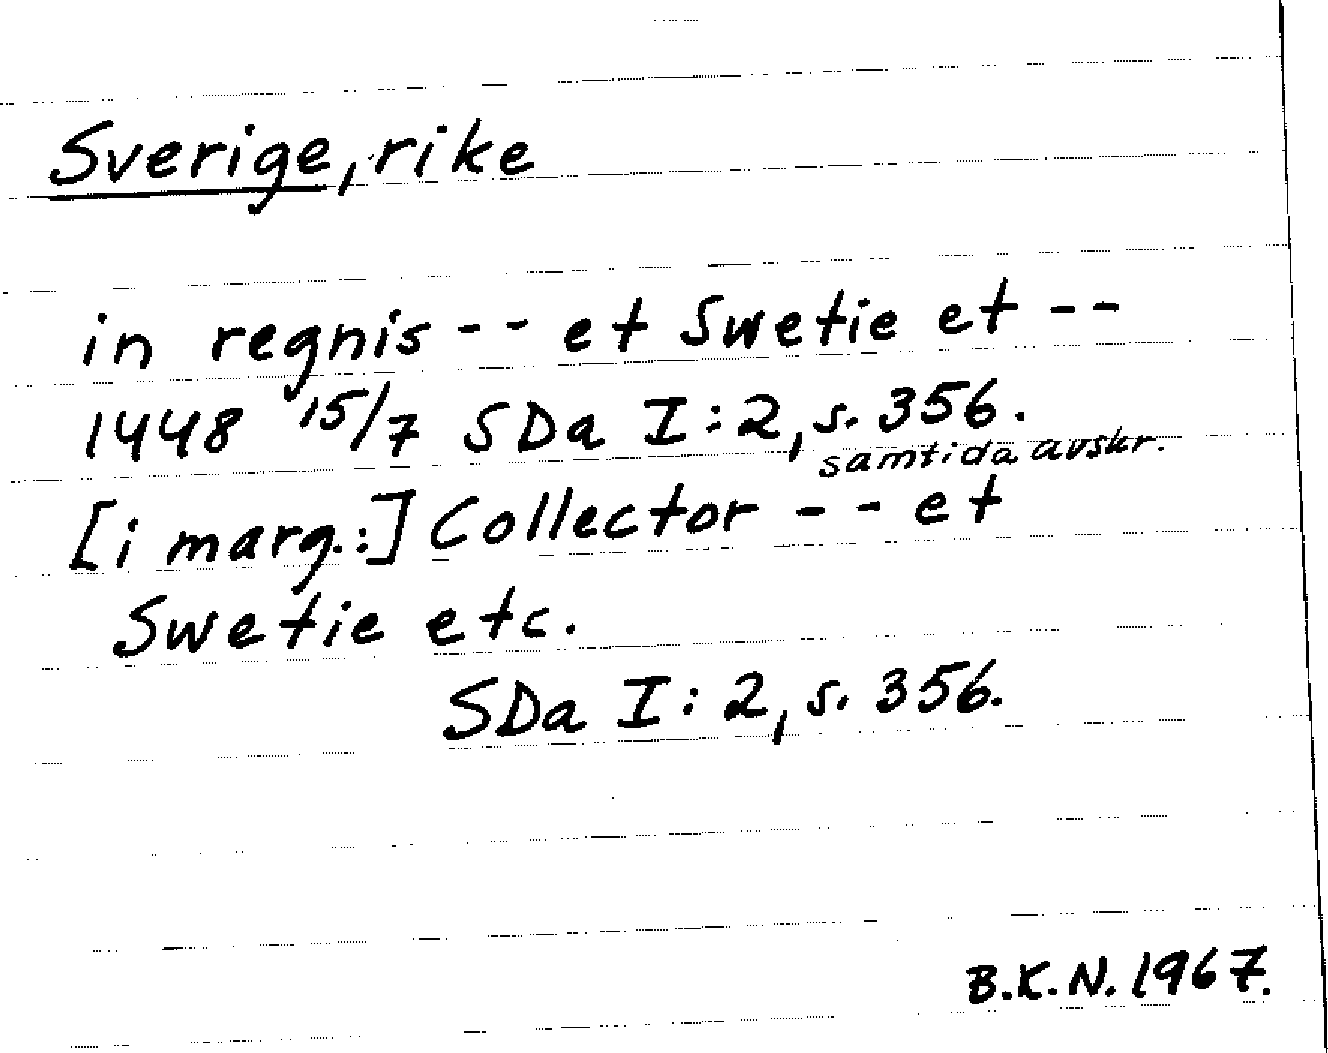 Sverige, rike
in regnis -- et Swetie et --
1448 15/7 SDa I:2, s. 356.
samtida avskr.
[i marg.:] Collector -- et
Swetie etc.
SDa I:2, s. 356.
B.K.N. 1967.